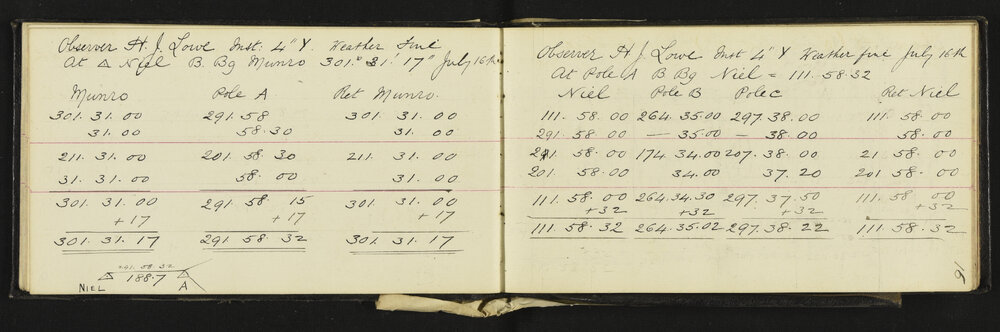 Observer H. J. Lowe Inst: 4" Y. Weather Fine
At △ Niel B. Bg Munro 301° 31' 17" July 16th
Munro Pole A Ret Munro.
301. 31. 00 291. 58 301. 31. 00
31. 00 58. 30 31. 00
211. 31. 00 201. 58. 30 211. 31. 00
31. 31. 00 58. 00 31. 00
301. 31. 00 291. 58. 15 301. 31. 00
+17 +17 +17
301. 31. 17 291. 58. 32 301. 31. 17
291. 58. 32
188.7
NIEL A
Observer H J Lowe Inst 4" Y Weather fine July 16th
At Pole A B Bg Niel = 111. 58. 32
Niel Pole B Pole C Ret Niel
111. 58. 00 264. 35. 00 297. 38. 00 111. 58. 00
291. 58. 00 — 35. 00 — 38. 00 58. 00
58. 00 174. 34. 00 207. 38. 00 21. 58. 00
201. 58. 00 34. 00 37. 20 201. 58. 00
111. 58. 00 264. 34. 30 297. 37. 50 111. 58. 00
+32 +32 +32 +32
111. 58. 32 264. 35. 02 297. 38. 22 111. 58. 32